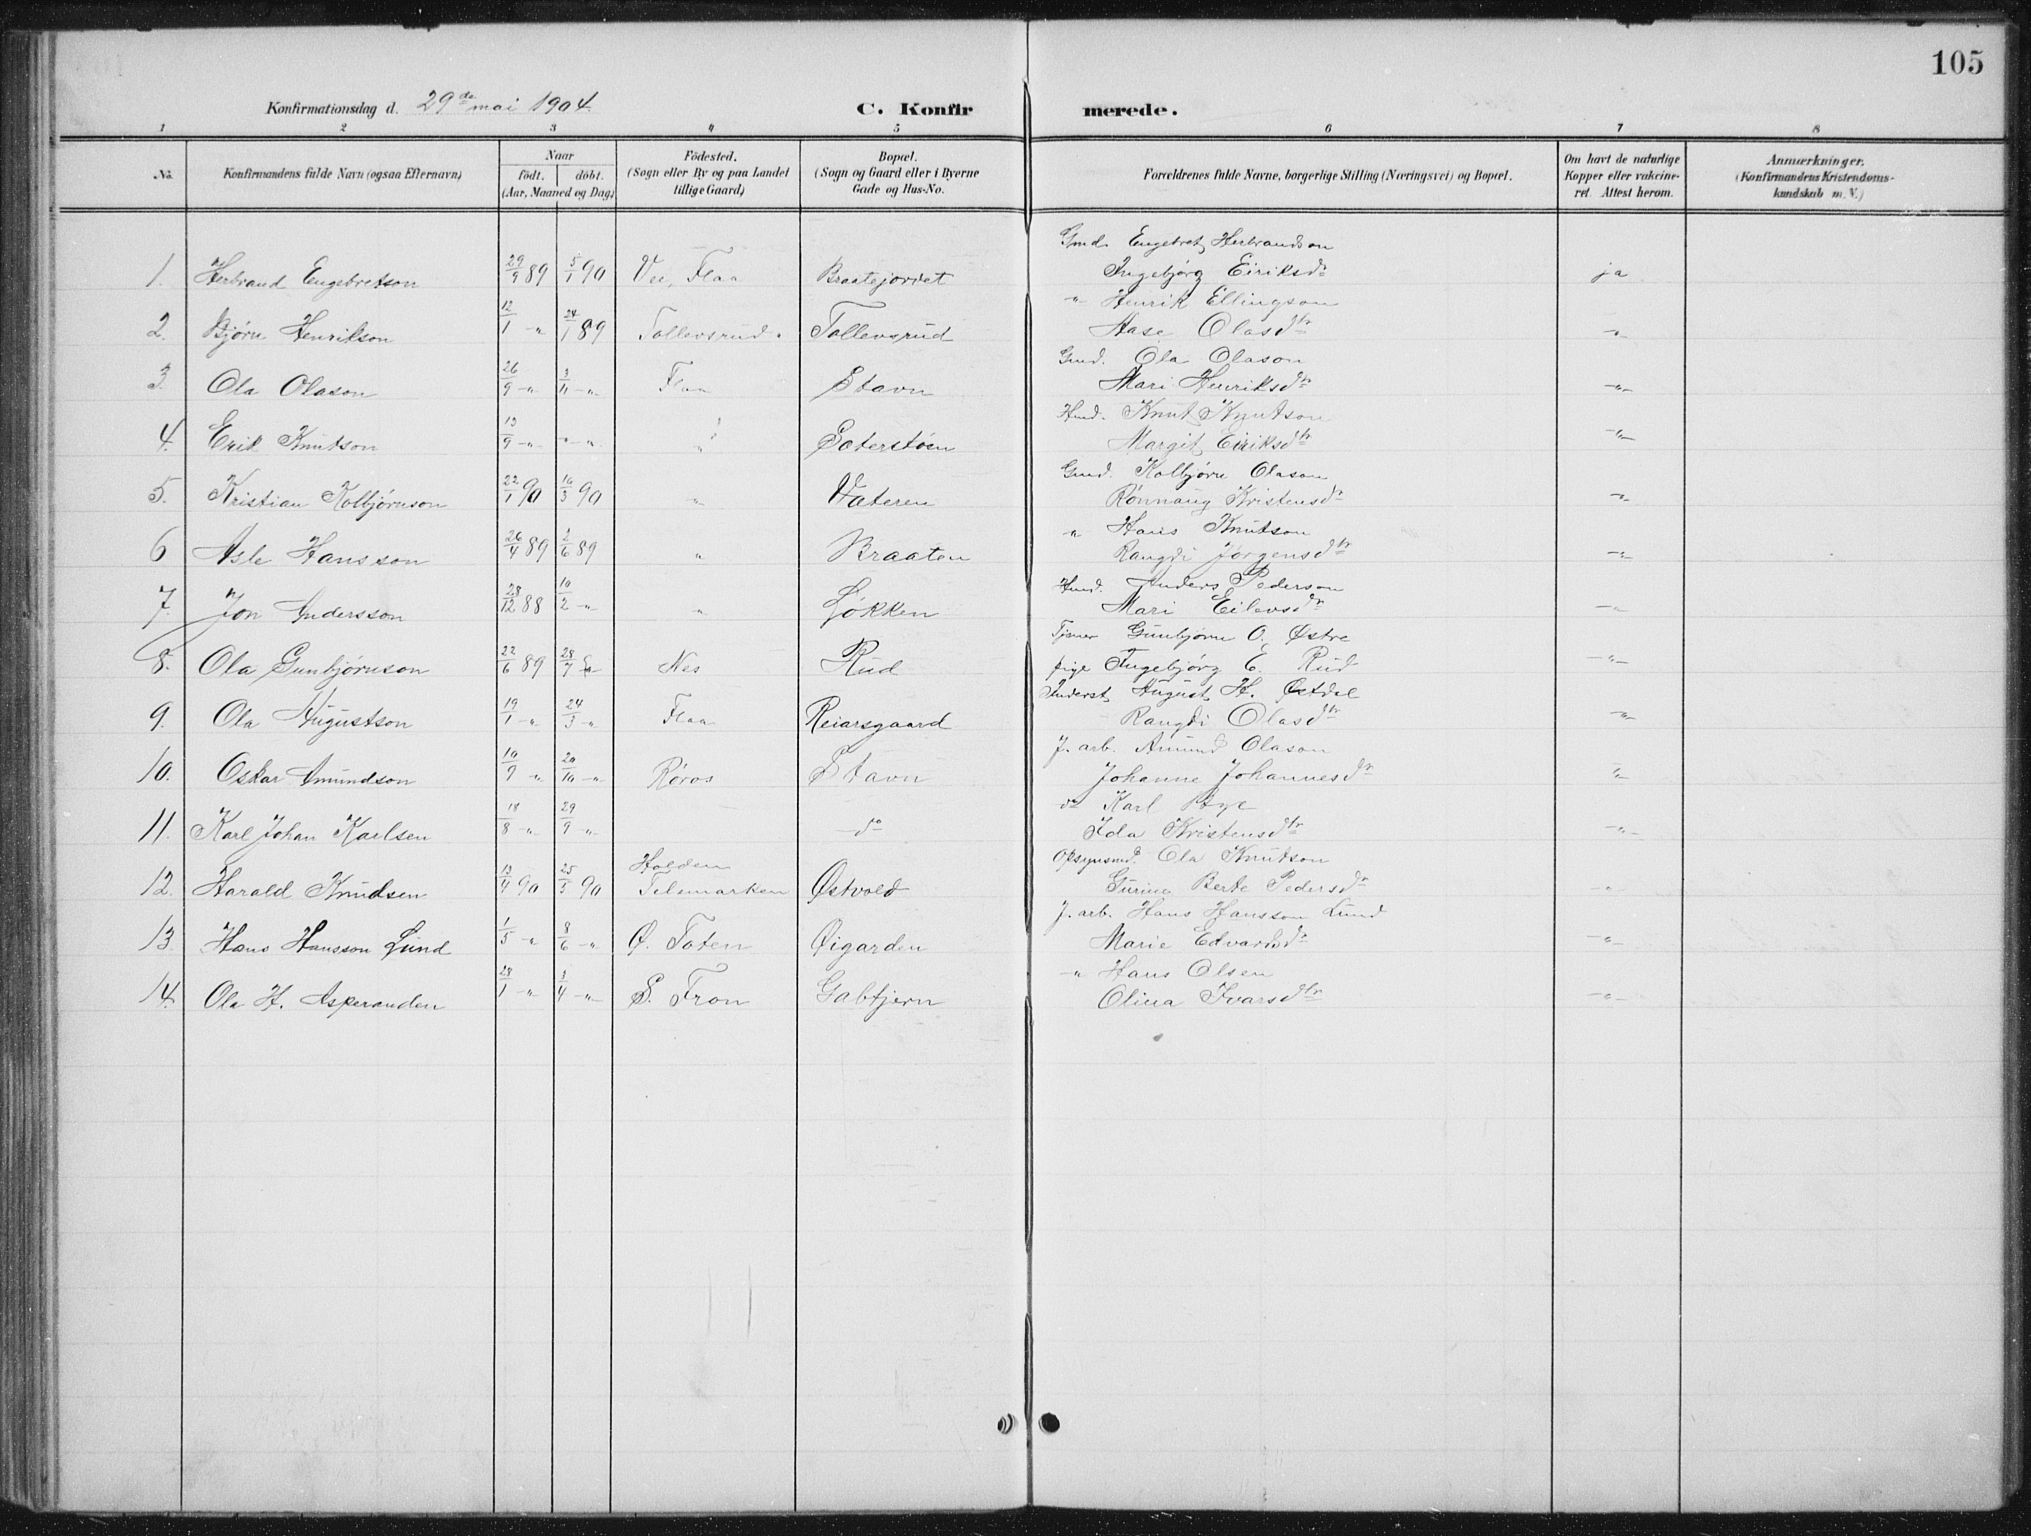 105
Konfirmationsdag d. 29de mai 1904. C. Konfirmerede.
1 2 3 4 5 6 7 8
No. Konfirmandens fulde Navn (ogsaa Efternavn) Naar født. døbt. (Aar, Maaned og Dag) Fødested. (Sogn eller By og paa Landet tillige Gaard) Bopæl. (Sogn og Gaard eller i Byerne Gade og Hus-No. Forældrenes fulde Navne, borgerlige Stilling (Næringsvei) og Bopæl. Om havt de naturlige Kopper eller vakcineret. Attest herom. Anmærkninger. (Konfirmandens Kristendomskundskab m. V.)
Gmd. Engebret Herbrandson
1. Herbrand Engebretson 29/9 89 5/1 90 Vee, Flaa Braatejordet Ingebjørg Eiriksdr ja
" Henrik Ellingson
2. Bjørn Henrikson 12/1 -"- 24/1 89 Tollevsrud. Tollevsrud Aase Olasdtr -"-
Gmd. Ola Olason
3. Ola Olason 26/9 -"- 3/11 -"- Flaa Stavn Mari Henriksdtr -"-
Hmd. Knut Knutson
4. Erik Knutson 13/9 -"- -"- -"- " Sæterstøen Margit Eiriksdtr -"-
Gmd. Kolbjørn Olason
5. Kristian Kolbjørnson 22/1 90 10/3 90 " Vateren Rønnaug Kristensdr -"-
" Hans Knutson
6 Asle Hansson 26/4 89 2/6 89 " Braaten Rangdi Jørgensdtr -"-
Hmd. Anders Pederson
7. Jon Andersson 28/12 88 10/2 -"- " Løkken Mari Eilevsdtr -"-
Tjener Gunbjørn O. Østre
8. Ola Gunbjørnson 22/6 89 28/7 Nes Rud pige Ingebjørg E. Rud -"-
Inderst August H. Østdal
9. Ola Augustson 19/1 -"- 24/3 -"- Flaa Reiarsgaard Rangdi Olasdtr -"-
J. arb. Amund Olason
10. Oskar Amundson 10/9 -"- 20/10 -"- Røros Stavn Johanne Johannesdr -"-
do Karl Bye
11. Karl Johan Karlsen 18/8 -"- 29/9 -"- do Ida Kristensdtr -"-
Opsynsmd. Ola Knutson
12. Harald Knudsen 13/4 90 25/5 90 Holden Telemarken Østvold Gurine Berte Pedersdr -"-
J. arb. Hans Hansson Lund
13. Hans Hansson Lund 1/5 -"- 8/6 -"- Ø. Toten Øigarden Marie Edvardsdr -"-
-"- Hans Olsen
14. Ola H. Asperanden 28/1 -"- 3/4 -"- S. Fron Gabtjern Olina Ivarsdtr -"-